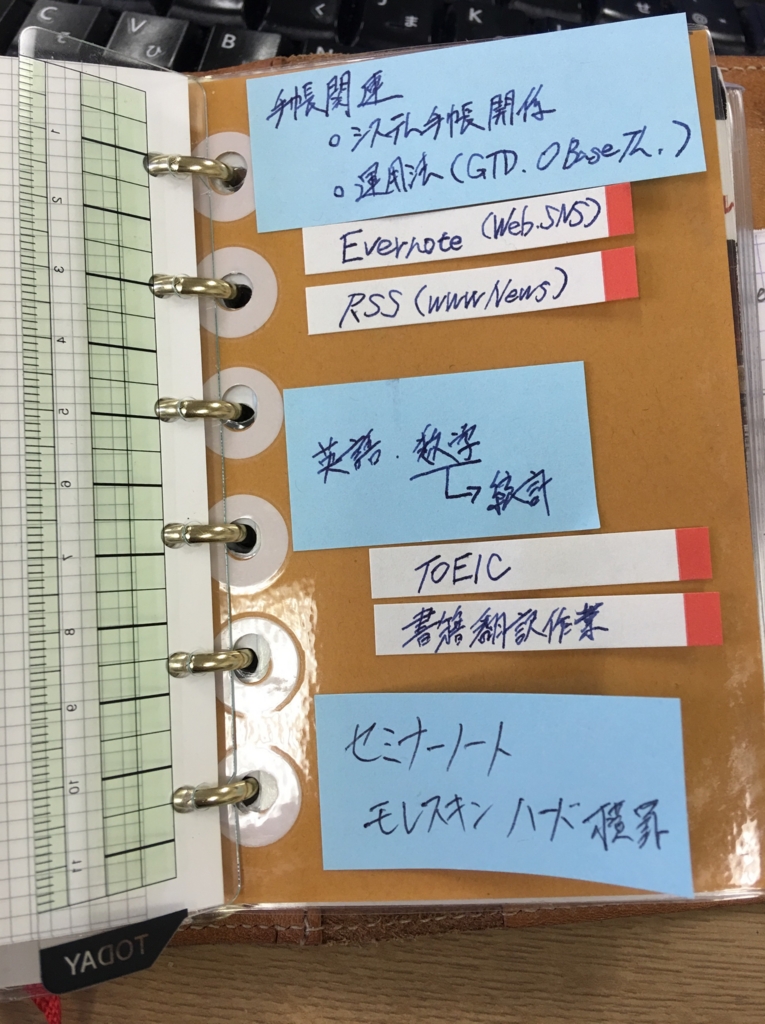 C
V
B
そ
ひ
く
ま
手帳関連
○ システム手帳関係
○ 運用法 (GTD. O Base Th.)
Evernote (Web.SNS)
RSS (www News)
英語・数学
→ 統計
TOEIC
書籍翻訳作業
セミナーノート
モレスキン ハード 横罫
1
2
3
4
5
6
7
8
9
10
11
TODAY